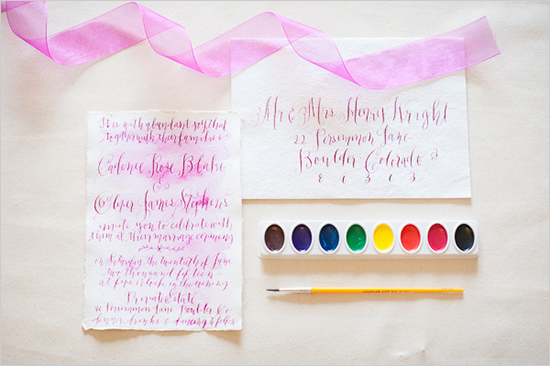 It is with abundant joy that
together with their families
Cadence Rose Blake
&
Oliver James Stephens
invite you to celebrate with
them at their marriage ceremony
on Saturday, the twentieth of June
two thousand fifteen
at four o'clock in the evening
Private Estate
22 Persimmon Lane Boulder Co
dinner, drinks & dancing to follow
Mr & Mrs Henry Wright
22 Persimmon Lane
Boulder Colorado
8 1 3 1 3